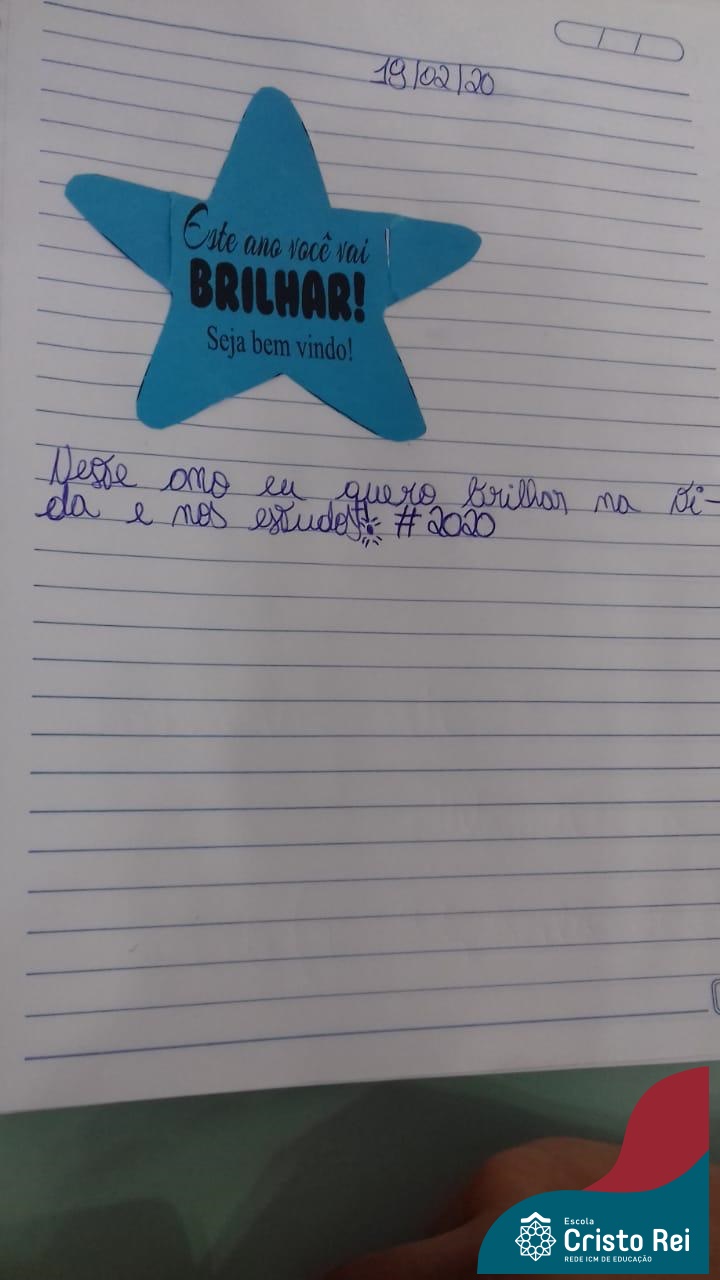 19/02/20
Este ano você vai
BRILHAR!
Seja bem vindo!
Nesse ano eu quero brilhar na vi-
da e nos estudos! #2020
Escola
Cristo Rei
REDE ICM DE EDUCAÇÃO